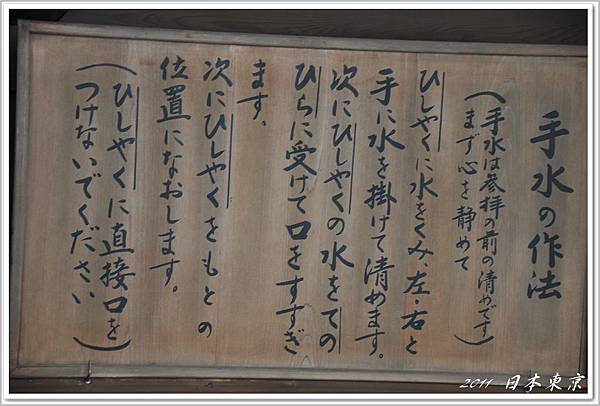 手水の作法
(手水は参拝の前の清めです)
まず心を静めて
ひしやくに水をくみ、左・右と
手に水を掛けて清めます。
次にひしやくの水をての
ひらに受けて口をすすぎ
ます。
次にひしやくをもとの
位置になおします。
(ひしやくに直接口を
つけないでください)
2011 日本東京